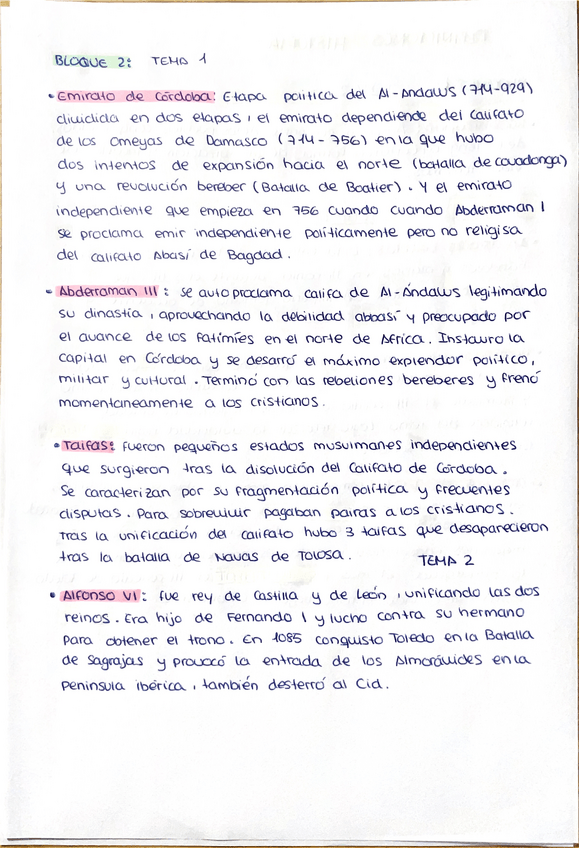 BLOQUE 2: TEMA 1
• Emirato de Córdoba: Etapa política del Al-Andalus (714-929)
dividida en dos etapas, el emirato dependiende del califato
de los omeyas de Damasco (714-756) en la que hubo
dos intentos de expansión hacia el norte (batalla de covadonga)
y una revolución bereber (Batalla de Boatier). Y el emirato
independiente que empieza en 756 cuando cuando Abderraman I
se proclama emir independiente políticamente pero no religisa
del califato Abasí de Bagdad.
• Abderraman III: se autoproclama califa de Al-Ándalus legitimando
su dinastía, aprovechando la debilidad abbasí y preocupado por
el avance de los fatimíes en el norte de Africa. Instauro la
capital en Córdoba y se desarró el máximo explendor político,
militar y cultural. Terminó con las rebeliones bereberes y frenó
momentaneamente a los cristianos.
• Taifas: fueron pequeños estados musulmanes independientes
que surgieron tras la disolución del Califato de Córdoba.
Se caracterizan por su fragmentación política y frecuentes
disputas. Para sobrevivir pagaban pairas a los cristianos.
Tras la unificación del califato hubo 3 taifas que desaparecieron
tras la batalla de Navas de Tolosa.
TEMA 2
• Alfonso VI: fue rey de Castilla y de León, unificando las dos
reinos. Era hijo de Fernando I y lucho contra su hermano
para obtener el trono. En 1085 conquisto Toledo en la Batalla
de Sagrajas y provocó la entrada de los Almorávides en la
Peninsula ibérica, también desterró al Cid.